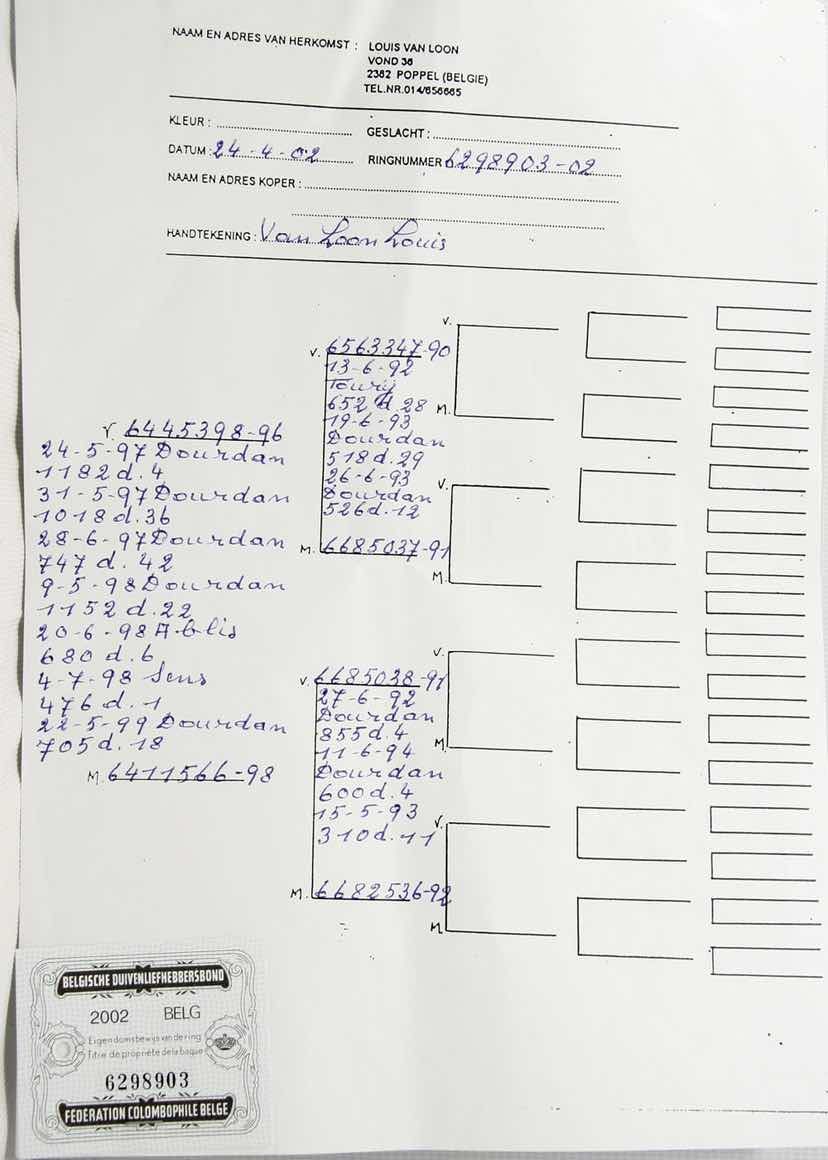 NAAM EN ADRES VAN HERKOMST : LOUIS VAN LOON
VOND 36
2382 POPPEL (BELGIE)
TEL.NR.014/656665
KLEUR : GESLACHT :
DATUM : 24-4-02 RINGNUMMER 6298903-02
NAAM EN ADRES KOPER :
HANDTEKENING : Van Loon Louis
V. 6445398-96
24-5-97 Dourdan
1182 d. 4
31-5-97 Dourdan
1018 d. 36
28-6-97 Dourdan
747 d. 42
9-5-98 Dourdan
1152 d. 22
20-6-98 Ablis
680 d. 6
4-7-98 Sens
476 d. 1
22-5-99 Dourdan
705 d. 18
M. 6411566-98
V. 6563347-90
13-6-92
Toury
652 d. 28
19-6-93
Dourdan
518 d. 29
26-6-93
Dourdan
526 d. 12
M. 6685037-91
V. 6685038-91
27-6-92
Dourdan
855 d. 4
11-6-94
Dourdan
600 d. 4
15-5-93
310 d. 11
M. 6682536-92
V.
M.
V.
M.
V.
M.
V.
M.
BELGISCHE DUIVENLIEFHEBBERSBOND
2002 BELG
Eigendomsbewijs van de ring
Titre de propriété de la bague
6298903
FEDERATION COLOMBOPHILE BELGE